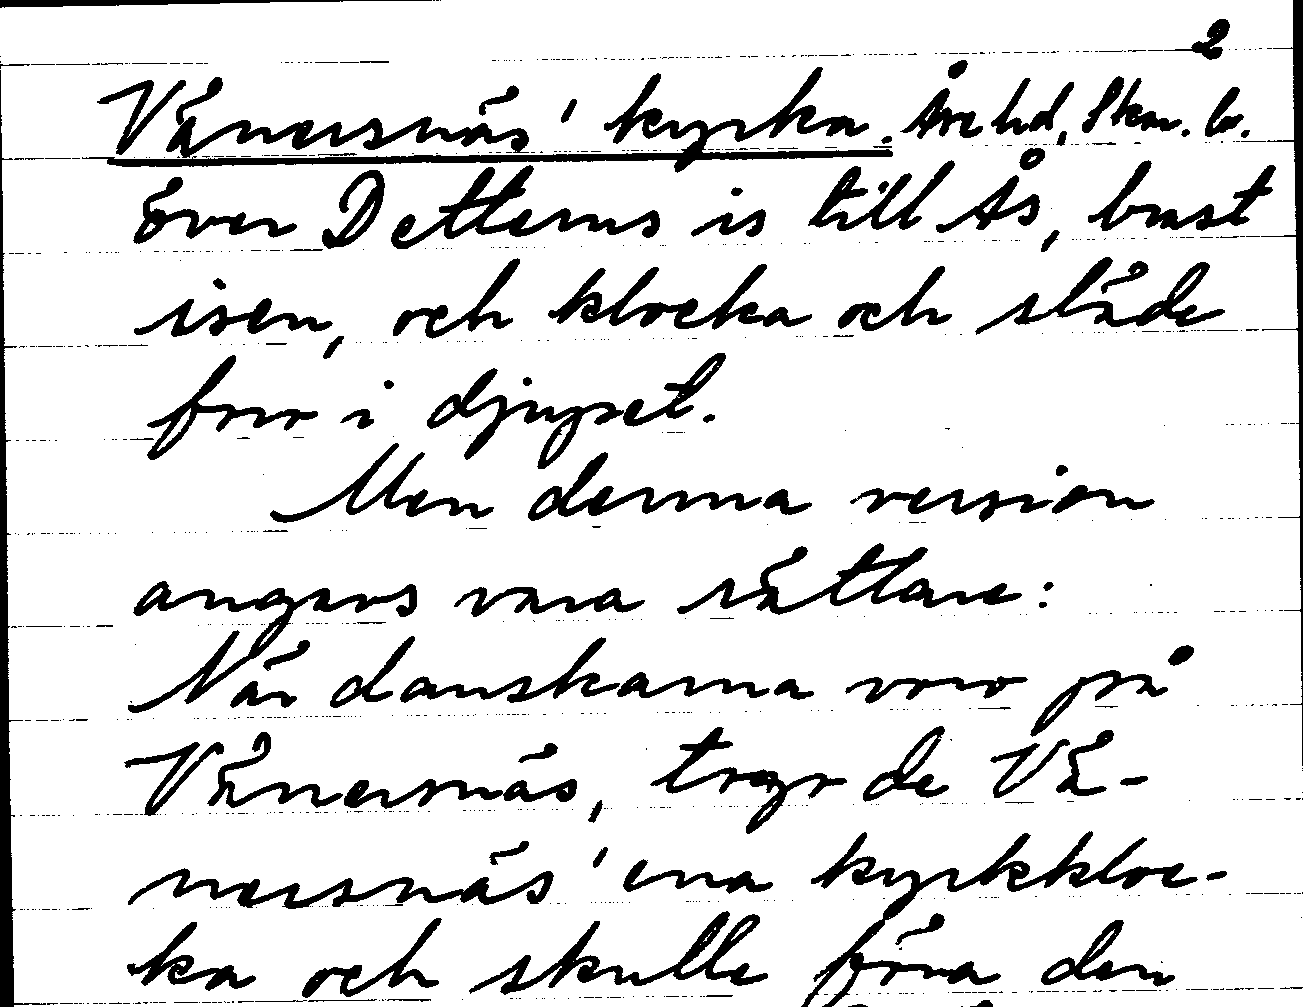 2
Vänersnäs' kyrka. Åse hd, Skar. l.
över Dettens is till Ås, brast
isen, och klocka och släde
foro i djupet.
Men denna version
angavs vara rättare:
När danskarna voro på
Vänersnäs, togo de Vä-
nersnäs' ena kyrkkloc-
ka och skulle föra den